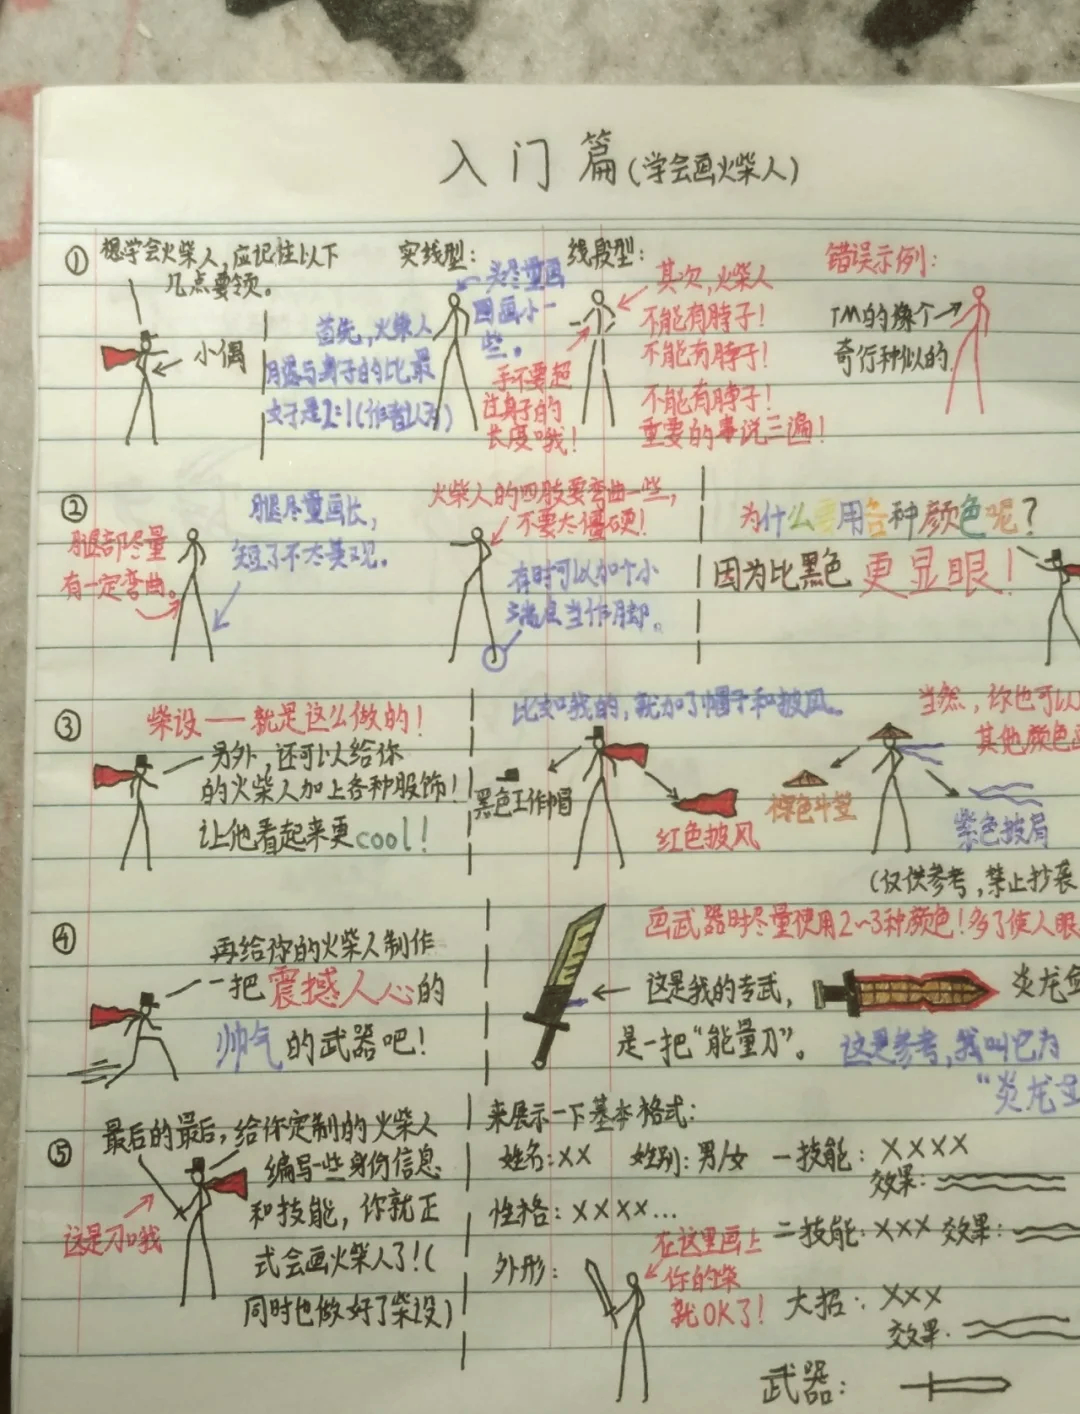 入门篇(学会画火柴人)
① 想学会火柴人,应记住以下
几点要领。
小偶
首先,火柴人
腿与身子的比最
好是2:1(作者认为)
实线型:
头尽量画
圆画小一
些。
手不要超
过身子的
长度哦!
线段型:
其次,火柴人
不能有脖子!
不能有脖子!
不能有脖子!
重要的事说三遍!
错误示例:
TM的像个
奇行种似的
②
腿部尽量
有一定弯曲。
腿尽量画长,
短了不太美观。
火柴人的四肢要弯曲一些,
不要太僵硬!
有时可以加个小
端点当作脚。
为什么要用各种颜色呢?
因为比黑色 更显眼!
③ 柴设——就是这么做的!
另外,还可以给你
的火柴人加上各种服饰!
让他看起来更cool!
比如我的,就加了帽子和披风。
黑色工作帽
红色披风
当然,你也可以
其他颜色
棕色斗笠
紫色披肩
(仅供参考,禁止抄袭
④ 再给你的火柴人制作
一把震撼人心的
帅气的武器吧!
画武器时尽量使用2~3种颜色!多了使人眼
这是我的专武,
是一把“能量刀”。
炎龙
这是参考,我叫它为
“炎龙
⑤ 最后的最后,给你定制的火柴人
编写一些身份信息
和技能,你就正
式会画火柴人了!(
同时也做好了柴设)
这是刀哦
来展示一下基本格式:
姓名:×× 姓别:男/女 一技能:××××
效果:
性格:××××...
二技能:××× 效果:
外形:
在这里画上
你的柴
就OK了!
大招:×××
效果:
武器: